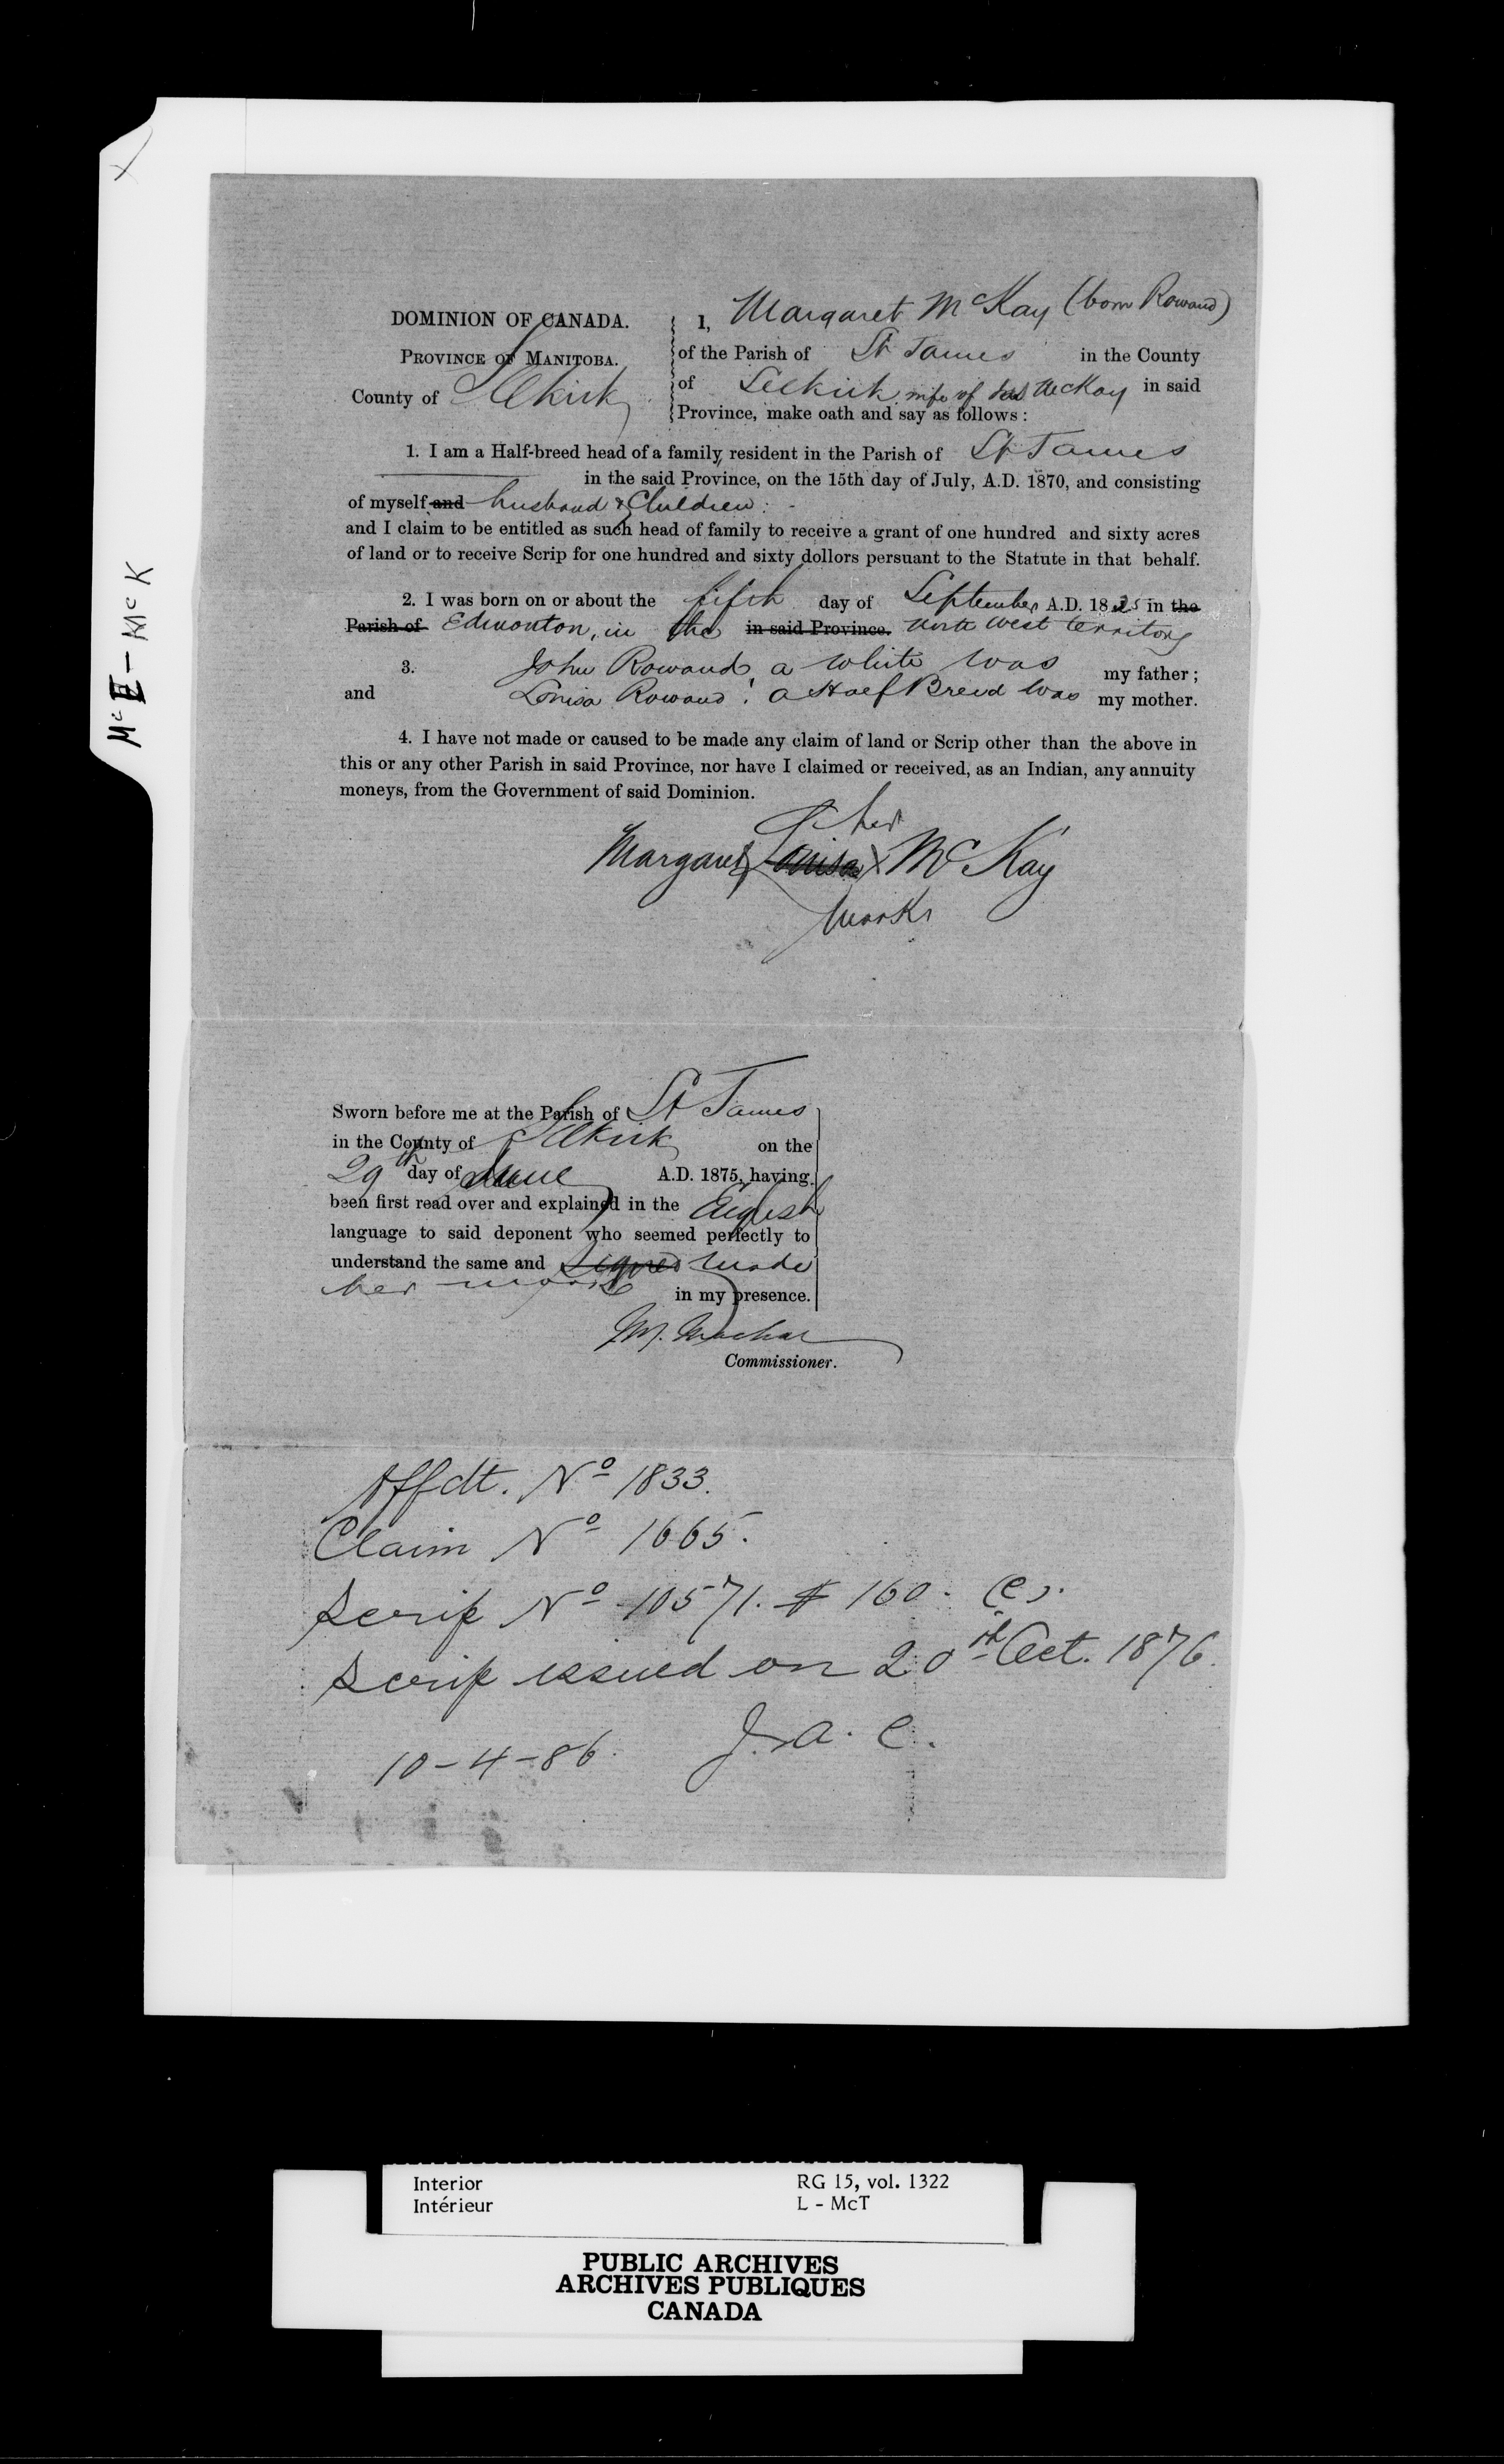 McE - McK
DOMINION OF CANADA.
PROVINCE OF MANITOBA.
County of Selkirk
I, Margaret McKay (born Rowand)
of the Parish of St James in the County
of Selkirk, wife of Jas McKay in said
Province, make oath and say as follows :
1. I am a Half-breed head of a family, resident in the Parish of St James
in the said Province, on the 15th day of July, A.D. 1870, and consisting
of myself and husband & Children :
and I claim to be entitled as such head of family to receive a grant of one hundred and sixty acres
of land or to receive Scrip for one hundred and sixty dollors persuant to the Statute in that behalf.
2. I was born on or about the fifth day of September A.D. 1825 in the
Parish of Edmonton, in the in said Province. North West Territory
3. John Rowand, a White was my father ;
and Louisa Rowand, a Half Breed was my mother.
4. I have not made or caused to be made any claim of land or Scrip other than the above in
this or any other Parish in said Province, nor have I claimed or received, as an Indian, any annuity
moneys, from the Government of said Dominion.
her
Margaret Louisa X McKay
mark
Sworn before me at the Parish of St James
in the County of Selkirk on the
29th day of June A.D. 1875, having
been first read over and explained in the English
language to said deponent who seemed perfectly to
understand the same and signed made
her mark in my presence.
M. Machar
Commissioner.
Affdt. No 1833.
Claim No 1665.
Scrip No 10571. $ 160.
Scrip issued on 20th Oct. 1876.
10-4-86. J. A. C.
Interior RG 15, vol. 1322
Intérieur L - McT
PUBLIC ARCHIVES
ARCHIVES PUBLIQUES
CANADA